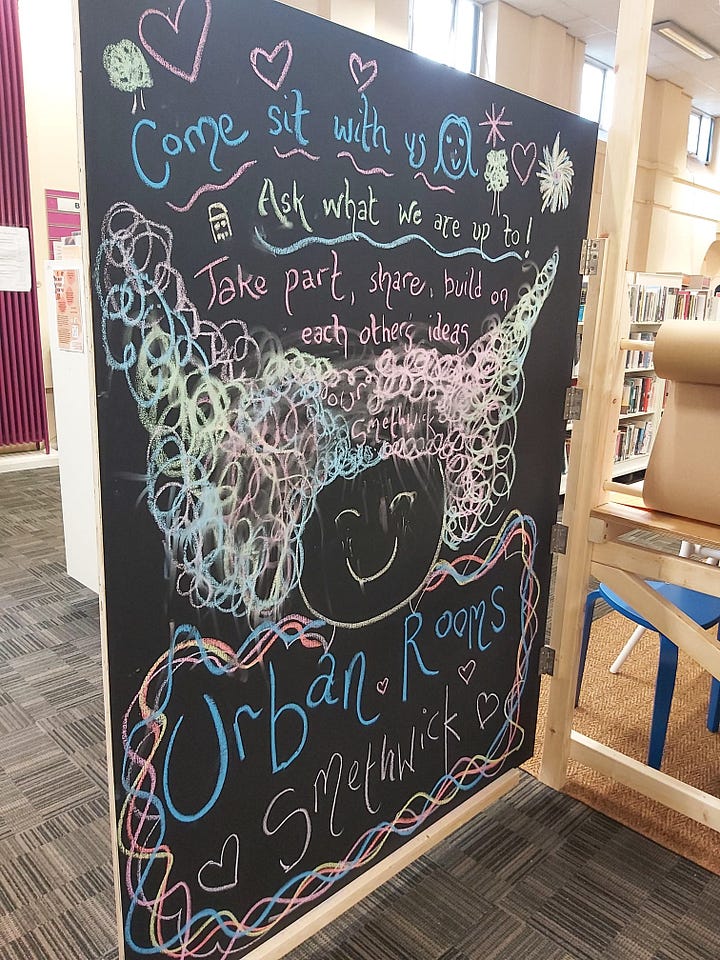 Come sit with us
Ask what we are up to!
Take part, share, build on
each other's ideas
Smethwick
Urban Rooms
Smethwick